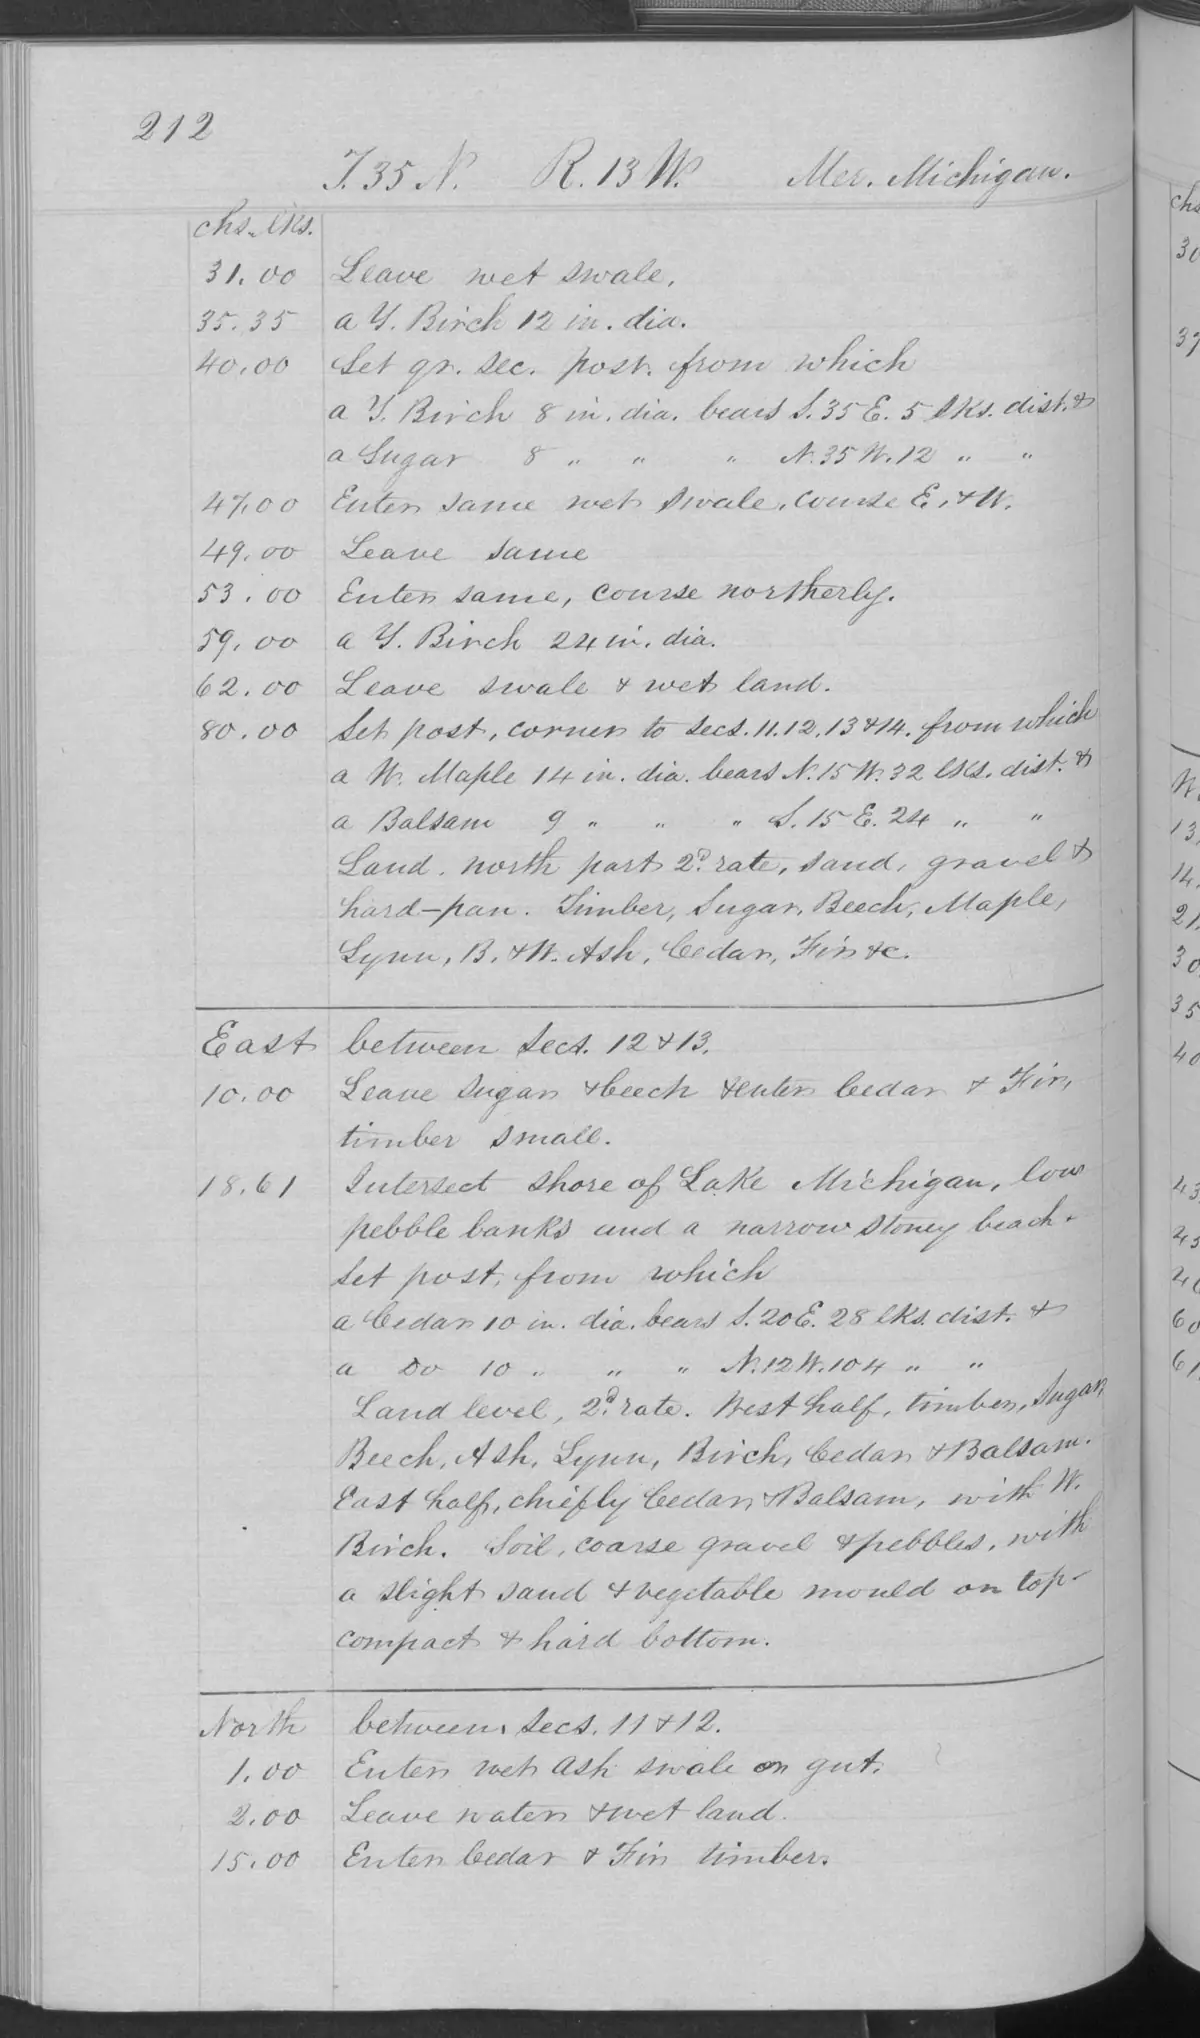 212
T. 35 N. R. 13 W. Mer. Michigan.
chs. lks.
31.00 Leave wet swale.
35.35 a Y. Birch 12 in. dia.
40.00 Set qr. sec. post. from which
a Y. Birch 8 in. dia. bears S. 35 E. 5 lks. dist. &
a Sugar 8 " " " N. 35 W. 12 " "
47.00 Enter same wet swale, course E. & W.
49.00 Leave same
53.00 Enter same, course northerly.
59.00 a Y. Birch 24 in. dia.
62.00 Leave swale & wet land.
80.00 Set post, corner to secs. 11. 12. 13 & 14. from which
a W. Maple 14 in. dia. bears N. 15 W. 32 lks. dist. &
a Balsam 9 " " " S. 15 E. 24 " "
Land. north part 2d. rate, sand, gravel &
hard-pan. Timber, Sugar, Beech, Maple,
Lynn, B. & W. Ash, Cedar, Fir &c.
East between Secs. 12 & 13.
10.00 Leave Sugar & beech & enter Cedar & Fir,
timber small.
18.61 Intersect shore of Lake Michigan, low
pebble banks and a narrow stoney beach.
Set post, from which
a Cedar 10 in. dia. bears S. 20 E. 28 lks. dist. &
a Do 10 " " " N. 12 W. 104 " "
Land level, 2d. rate. West half, timber, Sugar,
Beech, Ash, Lynn, Birch, Cedar & Balsam.
East half, chiefly Cedar & Balsam, with W.
Birch. Soil, coarse gravel & pebbles, with
a slight sand & vegetable mould on top-
compact & hard bottom.
North between Secs. 11 & 12.
1.00 Enter wet ash swale or gut.
2.00 Leave water & wet land.
15.00 Enter Cedar & Fir timber.